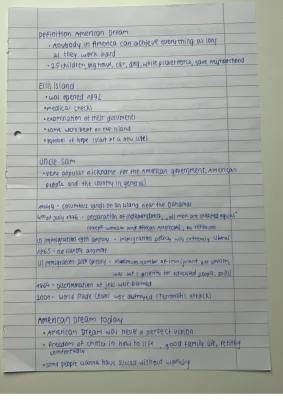 Definition American Dream
• Anybody in America can achieve everything as long
as they work hard
• 2.5 children, big house, car, dog, white picket fence, safe neighborhood
Ellis Island
• was opened 1892
• medical checks
• examination of their documents
• some were kept on the island
• symbol of hope (start of a new life)
Uncle Sam
• very popular nickname for the American government, American
people and the country in general
Columbus lands on an island near the Bahamas
4th of July 1776 - Declaration of Independence, "all men are created equal"
except women and African Americans,
1) immigration 19th century - immigration policy was extremely liberal
1865 - no slavery anymore
2) immigration 20th century - maximum number of immigrants per country,
was set, priority for educated people,
1964 - discrimination of jobs was banned
2001 - World Trade Center was destroyed (terrorist attack)
American Dream today
• American Dream was never a perfect vision
• freedom of choice in how to life, good family life, retiring
comfortable
• some people wanna have success without working